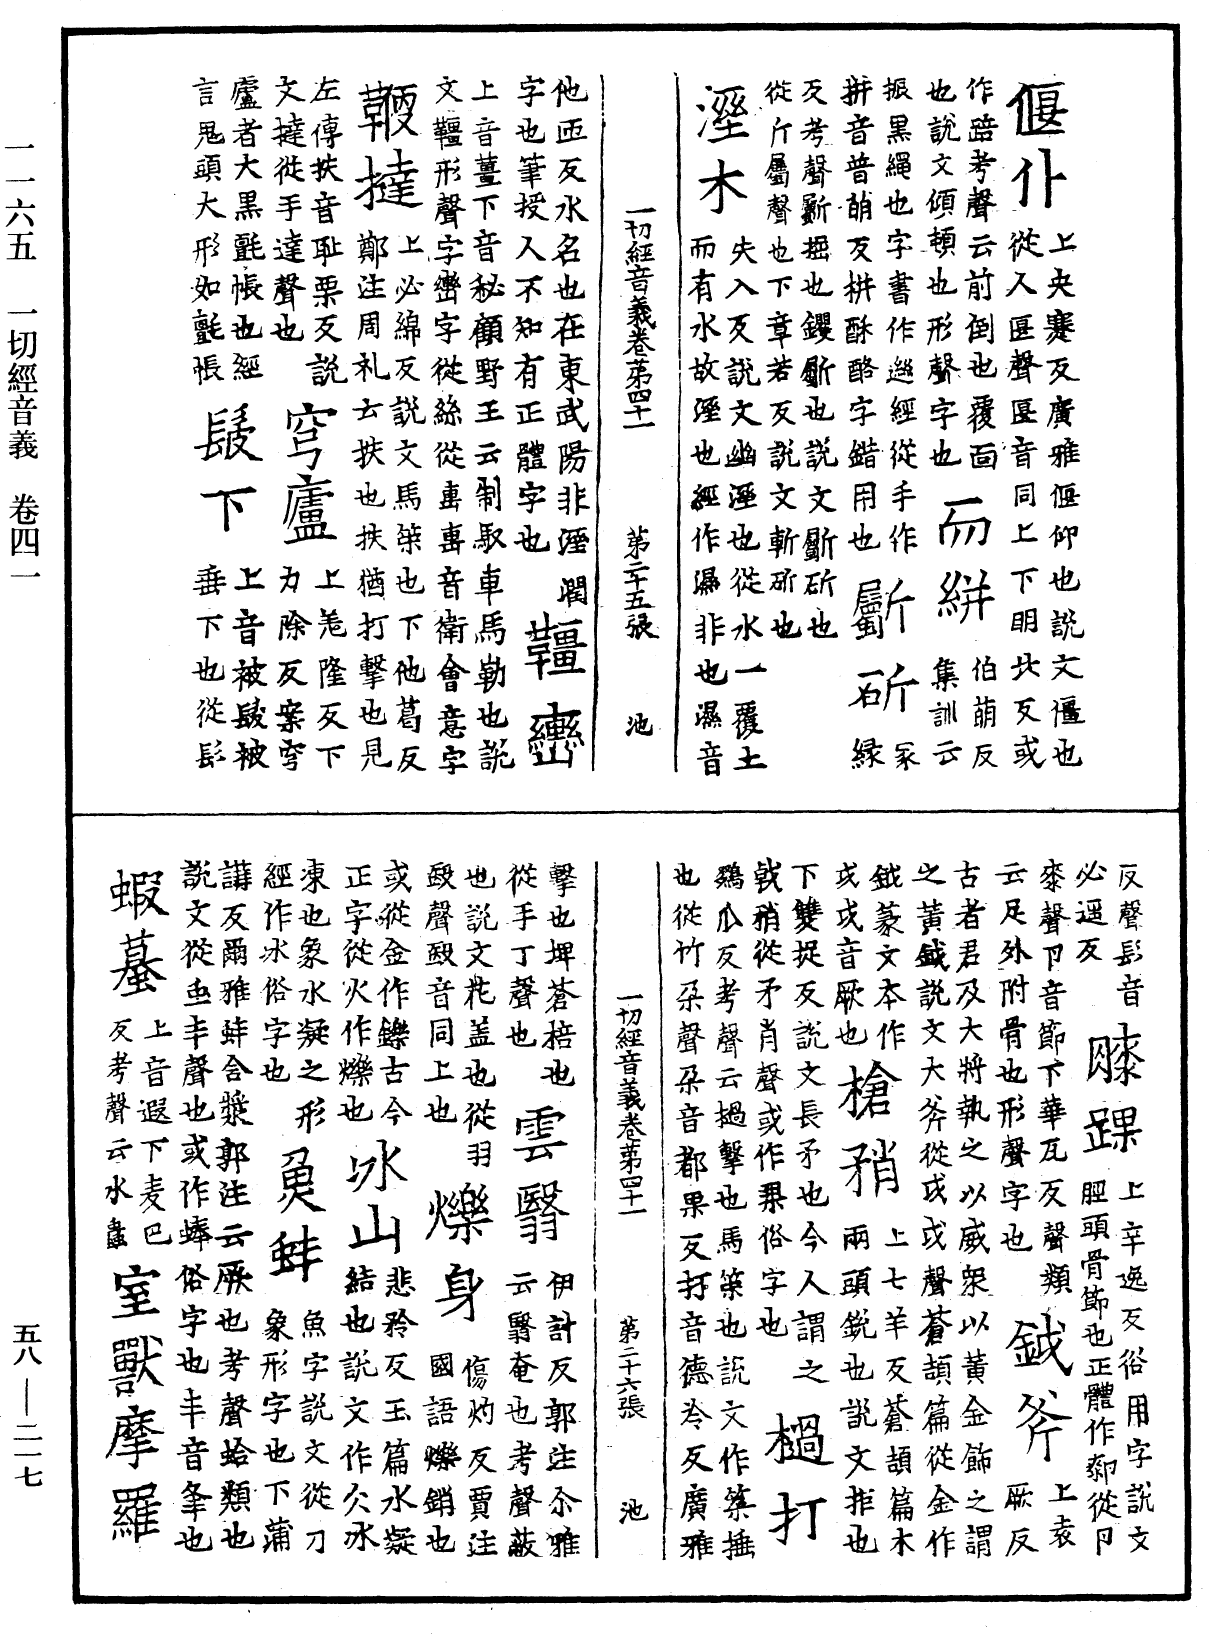 一一六五　一切經音義　卷四一
偃仆上央蹇反廣雅偃仰也説文僵也
從人匽聲匽音同上下明北反或
作踣考聲云前倒也覆面
也説文傾頓也形聲字也
而絣伯萌反
集訓云
振黑繩也字書作迸經從手作
拼音普萌反栟酥酪字錯用也
斸斫冢
反考聲斸掘也钁斸也説文斸斫也
從斤屬聲也下章若反説文斬斫也
溼木失入反説文幽溼也從水一覆土
而有水故溼也經作濕非也濕音
一切經音義卷第四十一　第二十五張　池
他匝反水名也在東武陽非溼潤
字也筆授人不知有正體字也
韁轡
上音薑下音秘顧野王云制馭車馬勒也説
文韁形聲字轡字從絲從軎軎音衛會意字
鞭撻上必綿反説文馬箠也下他葛反
鄭注周礼云扶也扶猶打擊也見
左傳扶音耻栗反説
文撻從手達聲也
穹廬上羌隆反下
力除反案穹
廬者大黑氈帳也經
言鬼頭大形如氈帳
髲下上音被髲被
垂下也從髟
反聲髟音
必遥反
膝踝上辛逸反俗用字説文
脛頭骨節也正體作厀從卪
桼聲卪音節下華瓦反聲類
云足外附骨也形聲字也
鉞斧上袁
厥反
古者君及大將執之以威衆以黄金飾之謂
之黄鉞説文大斧從戉戉聲蒼頡篇從金作
鉞篆文本作
戉戉音厥也
槍矟上七羊反蒼頡篇木
兩頭鋭也説文拒也
下雙捉反説文長矛也今人謂之
戟矟從矛肖聲或作槊俗字也
檛打
鷄瓜反考聲云撾擊也馬策也説文作築捶
也從竹朶聲朶音都果反打音德冷反廣雅
一切經音義卷第四十一　第二十六張　池
擊也埤蒼棓也
從手丁聲也
雲翳伊計反郭注尒雅
云翳奄也考聲蔽
也説文花盖也從羽
殹聲殹音同上也
爍身傷灼反賈注
國語爍銷也
或從金作鑠古今
正字從火作爍也
冰山悲矜反玉篇水凝
結也説文作仌冰
凍也象水凝之形
經作氷俗字也
魚蚌魚字説文從刀
象形字也下蒲
講反爾雅蚌含漿郭注云蜃也考聲蛤類也
説文從虫丰聲也或作蜯俗字也丰音峯也
蝦蟇上音遐下麦巴
反考聲云水蟲
室獸摩羅
五八—二一七